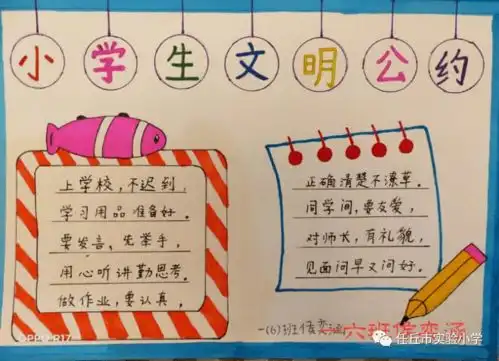 小学生文明公约
上学校，不迟到，
学习用品准备好。
要发言，先举手，
用心听讲勤思考。
做作业，要认真，
正确清楚不潦草。
同学间，要友爱，
对师长，有礼貌，
见面问早又问好。
一(6)班侯奕涵
六班侯奕涵
OPPO R17
任丘市实验小学